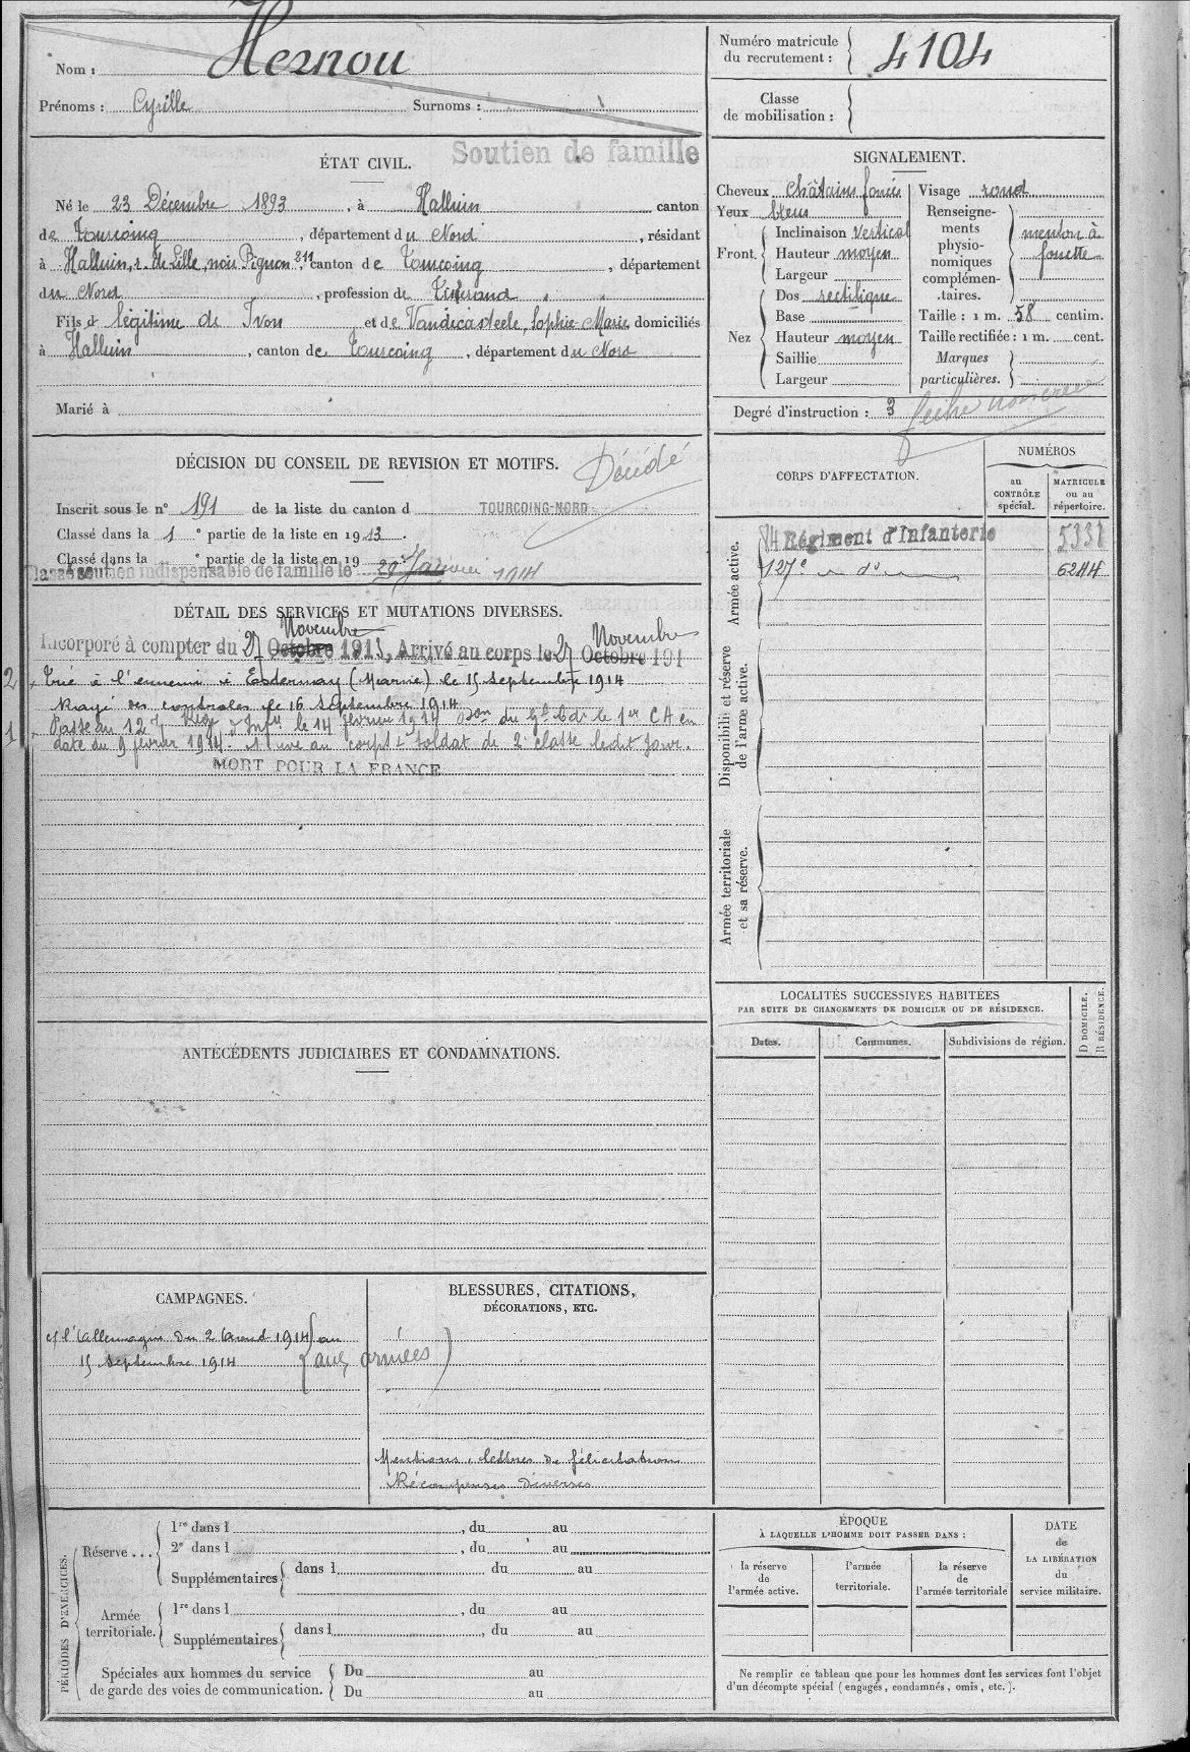 Nom : Hernou
Prénoms : Cyrille Surnoms :
Soutien de famille
ÉTAT CIVIL.
Né le 23 Décembre 1893, à Halluin canton
de Tourcoing, département du Nord, résidant
à Halluin, r. de Lille, noir Pignon 211, canton de Tourcoing, département
du Nord, profession de Tisserand
Fils d légitime de Ivon et de Vandecasteele, Sophie Marie domiciliés
à Halluin, canton de Tourcoing, département du Nord
Marié à
DÉCISION DU CONSEIL DE REVISION ET MOTIFS.
Décédé
Inscrit sous le n° 191 de la liste du canton d TOURCOING-NORD
Classé dans la 1 e partie de la liste en 1913.
Classé dans la e partie de la liste en 19
Classé soutien indispensable de famille le 29 Janvier 1914
DÉTAIL DES SERVICES ET MUTATIONS DIVERSES.
Novembre Novembre
Incorporé à compter du 27 Octobre 1913, Arrivé au corps le 27 Octobre 191
2 Tué à l'ennemi à Esternay (Marne) le 15 septembre 1914
Rayé des contrôles le 16 septembre 1914
1 Passé au 127e Régt d'Infie le 14 février 1914 Don du Gal Cdt le 1er CA en
date du 9 février 1914. Arrivé au corps & soldat de 2e classe ledit jour.
MORT POUR LA FRANCE
ANTÉCÉDENTS JUDICIAIRES ET CONDAMNATIONS.
CAMPAGNES.
c/ l'Allemagne du 2 août 1914 au
15 septembre 1914 (aux armées)
BLESSURES, CITATIONS,
DÉCORATIONS, ETC.
Mentions, lettres de félicitations
Récompenses diverses
PÉRIODES D'EXERCICES.
Réserve ...
1re dans l , du au
2e dans l , du au
Supplémentaires dans l du au
Armée territoriale.
1re dans l , du au
Supplémentaires dans l , du au
Spéciales aux hommes du service
de garde des voies de communication.
Du au
Du au
Numéro matricule
du recrutement : 4104
Classe
de mobilisation :
SIGNALEMENT.
Cheveux châtains foncés
Yeux bleus
Front.
Inclinaison vertical
Hauteur moyen
Largeur
Nez
Dos rectiligne
Base
Hauteur moyen
Saillie
Largeur
Visage rond
Renseigne-
ments
physio-
nomiques
complémen-
taires.
menton à
fossette
Taille : 1 m. 58 centim.
Taille rectifiée : 1 m. cent.
Marques
particulières.
Degré d'instruction : 3
CORPS D'AFFECTATION.
NUMÉROS
au
CONTRÔLE
spécial.
MATRICULE
ou au
répertoire.
Armée active.
84 Régiment d'Infanterie 5338
127e d° 6244
Disponibilité et réserve
de l'arme active.
Armée territoriale
et sa réserve.
LOCALITÉS SUCCESSIVES HABITÉES
PAR SUITE DE CHANGEMENTS DE DOMICILE OU DE RÉSIDENCE.
Dates. Communes. Subdivisions de région.
D DOMICILE.
R RÉSIDENCE.
ÉPOQUE
À LAQUELLE L'HOMME DOIT PASSER DANS :
la réserve
de
l'armée active.
l'armée
territoriale.
la réserve
de
l'armée territoriale
DATE
de
LA LIBÉRATION
du
service militaire.
Ne remplir ce tableau que pour les hommes dont les services font l'objet
d'un décompte spécial (engagés, condamnés, omis, etc.).